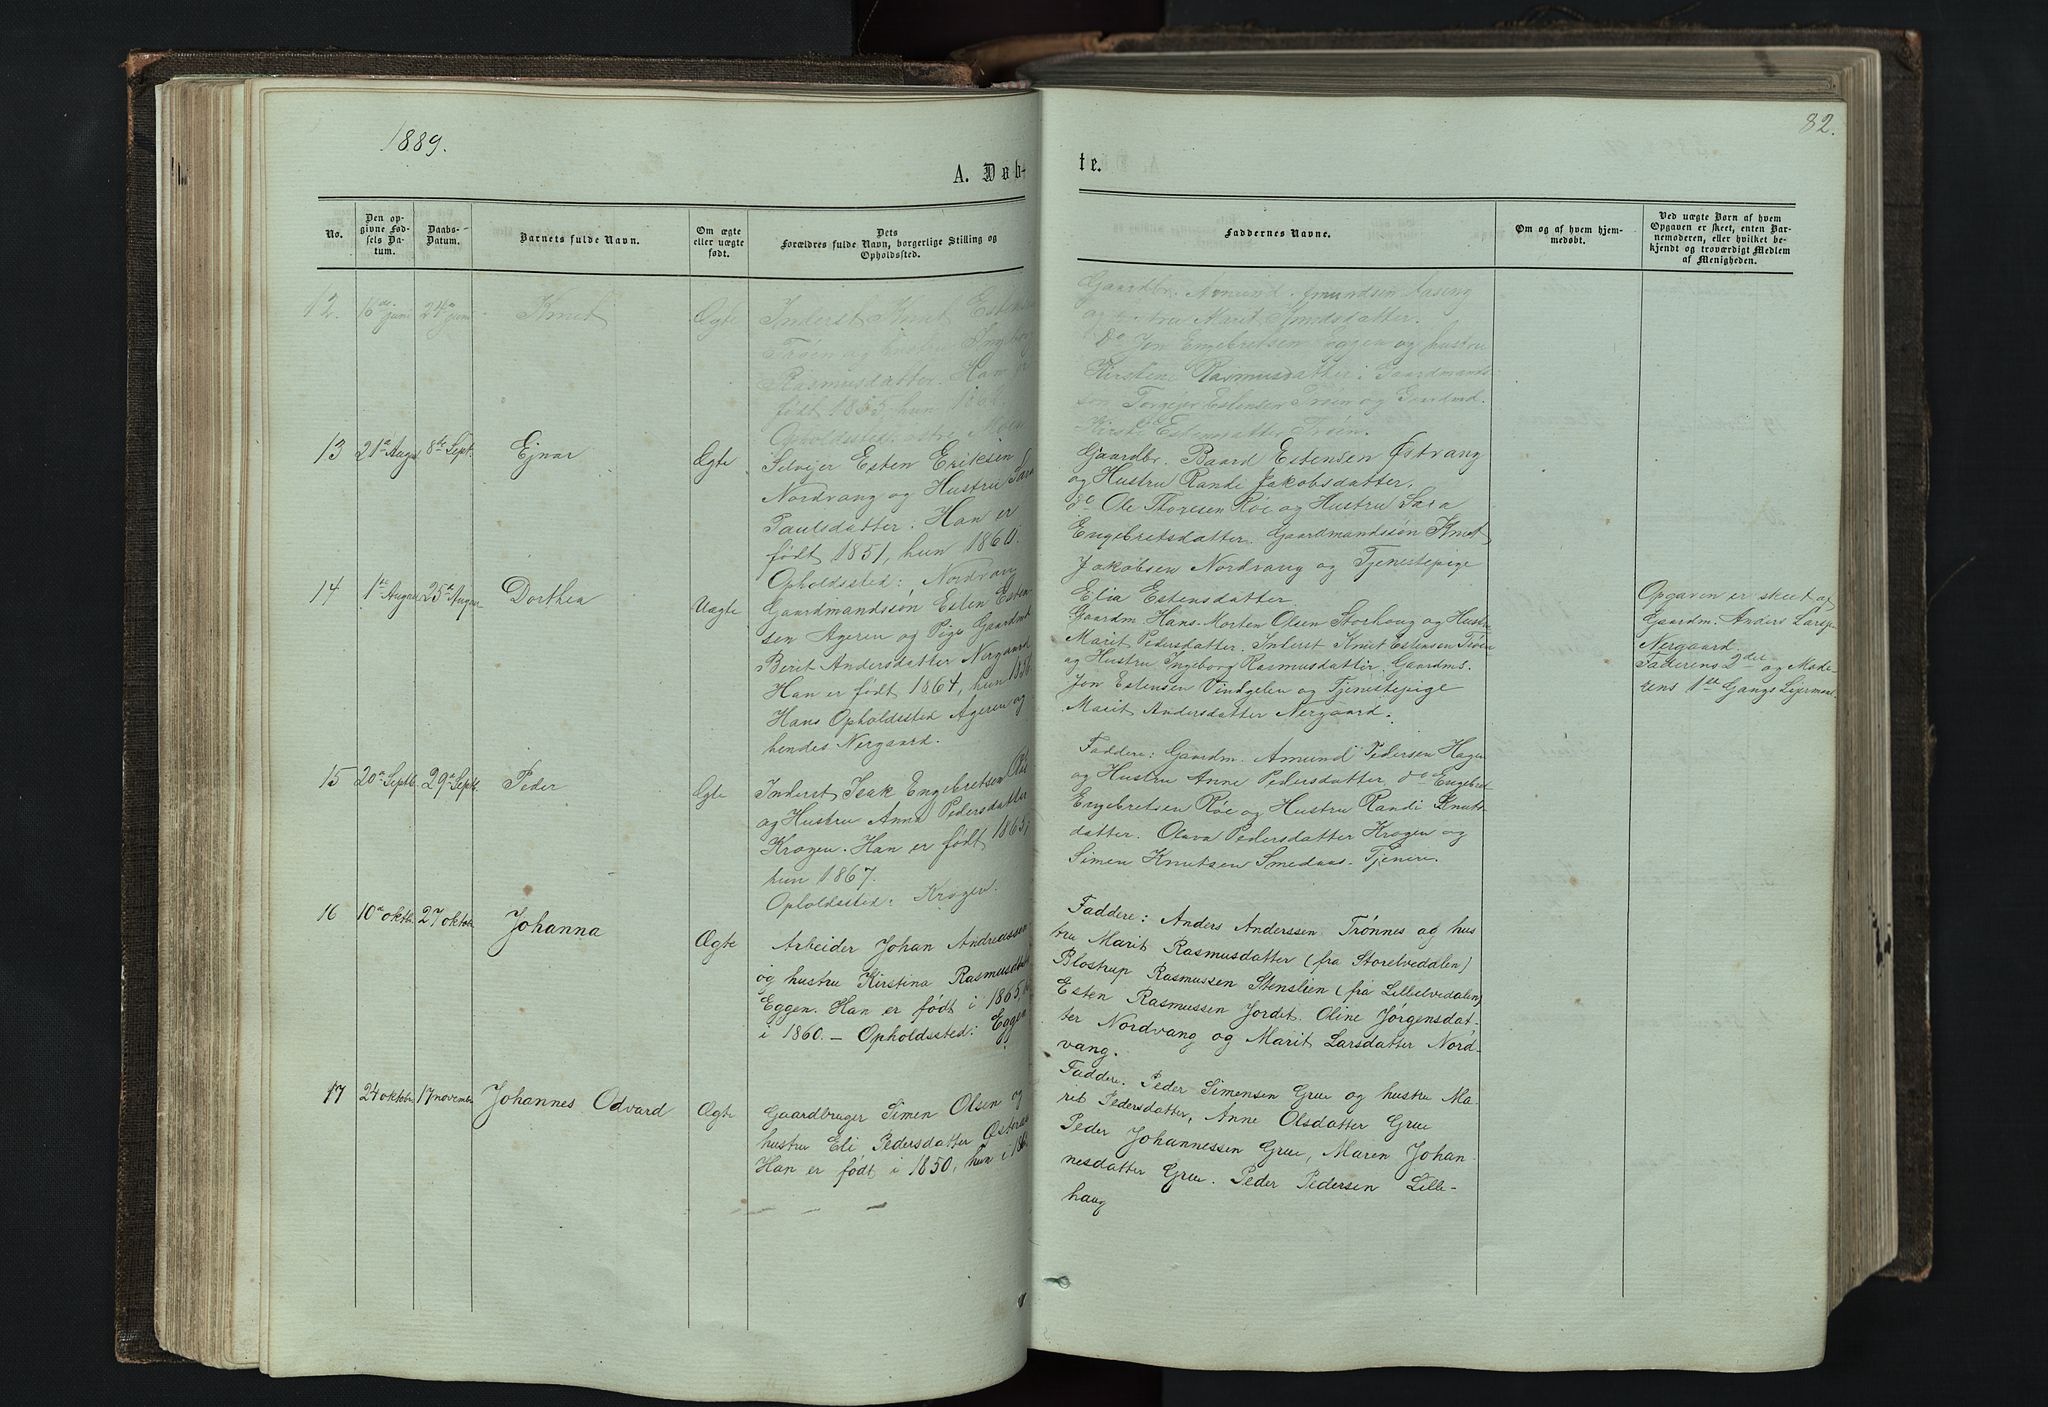 1889.
82.
A. Døbte.
No.
Den opgivne Fødsels Datum.
Daabs-Datum.
Barnets fulde Navn.
Om ægte eller uægte født.
Dets Forældres fulde Navn, borgerlige Stilling og Opholdssted.
Faddernes Navne.
Om og af hvem hjemmedøbt.
Ved uægte Børn af hvem Opgaven er skeet, enten Barnemoderen, eller hvilket bekjendt og troværdigt Medlem af Menigheden.
12. 16de juni 24de juni Knut Ægte
Inderst Knut Estensen
Trøen og hustru Ingeborg
Rasmusdatter. Han er
født 1855, hun 186
Opholdssted: Moen
Gaardbr. Amund Amundsen Aaseng
og hustru Marit Amundsdatter.
do Jon Engebretsen Eggen og hustru
Kirstine Rasmusdatter. Gaardmands-
søn Torgejer Estensen Trøen og Gaardmd.
Estensdatter Trøen.
13 21de August 8de Sept. Ejnar Ægte
Selvejer Esten Eriksen
Nordvang og Hustru Sara
Paulsdatter. Han er
født 1851, hun 1860.
Opholdssted: Nordvang
Gaardbr. Baard Estensen Østvang
og Hustru Randi Jakobsdatter.
do Ole Thoresen Røe og Hustru Sara
Engebretsdatter. Gaardmandssøn Knut
Jakobsen Nordvang og Tjenestepige
Elia Estensdatter
14 1ste August 25de August Dorthea Uægte
Gaardmandssøn Esten Esten-
sen Ageren og Pige Gaardmd.
Berit Andersdatter Nergaard
Han er født 1864, hun 1856
Hans Opholdssted Ageren og
hendes Nergaard.
Gaardm. Hans-Morten Olsen Storhoug og Hustru
Marit Pedersdatter. Inderst Knut Estensen Trøen
og Hustru Ingeborg Rasmusdatter. Gaardms.
Jon Estensen Vindgelen og Tjenestepige
Marit Andersdatter Nergaard.
Opgaven er skeet af
Gaardm. Anders Larsen
Nergaard.
Faderens 2den og Mode-
rens 1ste Gangs Lejermaal.
15 20de Septb. 29de Septb. Peder Ægte
Inderst Isak Engebretsen Røe
og Hustru Anna Pedersdatter
Krogen. Han er født 1865,
hun 1867.
Opholdssted: Krogen.
Faddere: Gaardm. Amund Pedersen Hagen
og Hustru Anne Pedersdatter. do Engebret
Engebretsen Røe og Hustru Randi Knuts-
datter. Olava Pedersdatter Krogen og
Simen Knutsen Smedaas. Tjenere.
16 10de oktbr. 27 oktober Johanna Ægte
Arbeider Johan Andreassen
og hustru Kirstina Rasmusdatter
Eggen. Han er født i 1865, hun
i 1860. — Opholdssted: Eggen
Faddere: Anders Anderssen Trønnes og hus
tru Marit Rasmusdatter (fra Storelvedalen)
Blostrup Rasmussen Stenslien (fra Lilleelvedalen)
Esten Rasmussen Jordet. Oline Jørgensdat-
ter Nordvang og Marit Larsdatter Nord-
vang.
17 24 oktober 17 november Johannes Odvard Ægte
Gaardbruger Simen Olsen og
hustru Eli Pedersdatter Østeraas
Han er født i 1850, hun i 186
Faddere. Peder Simensen Grue og hustru Ma-
rit Pedersdatter, Anne Olsdatter Grue
Peder Johannessen Grue, Maren Johan-
nesdatter Grue. Peder Pedersen Lille-
haug